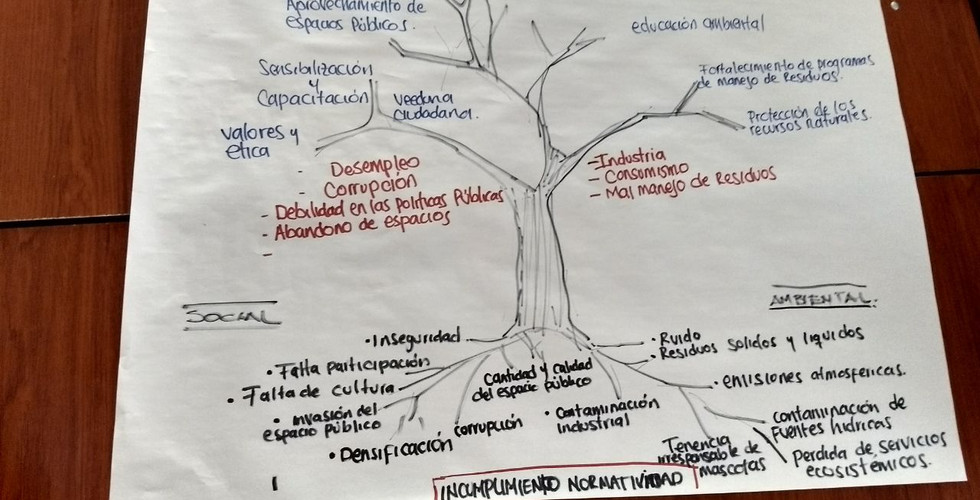 Aprovechamiento de
espacios Públicos.
educación ambiental
Sensibilización
y
Capacitación
Veeduria
ciudadana.
Fortalecimiento de programas
de manejo de Residuos.
Protección de los
recursos naturales.
valores y
etica
- Desempleo
- Corrupción
- Debilidad en las politicas Públicas
- Abandono de espacios
-
- Industria
- Consumismo
- Mal manejo de Residuos
SOCIAL
AMBIENTAL.
• Inseguridad
• Falta participación
• Falta de cultura
• Invasión del
espacio público
• Densificación
corrupción
Cantidad y calidad
del espacio público
• Contaminación
industrial
• Ruido
• Residuos solidos y liquidos
• emisiones atmosfericas.
contaminación de
Fuentes hidricas
Perdida de servicios
ecosistémicos.
Tenencia
irresponsable de
mascotas
INCUMPLIMIENTO NORMATIVIDAD